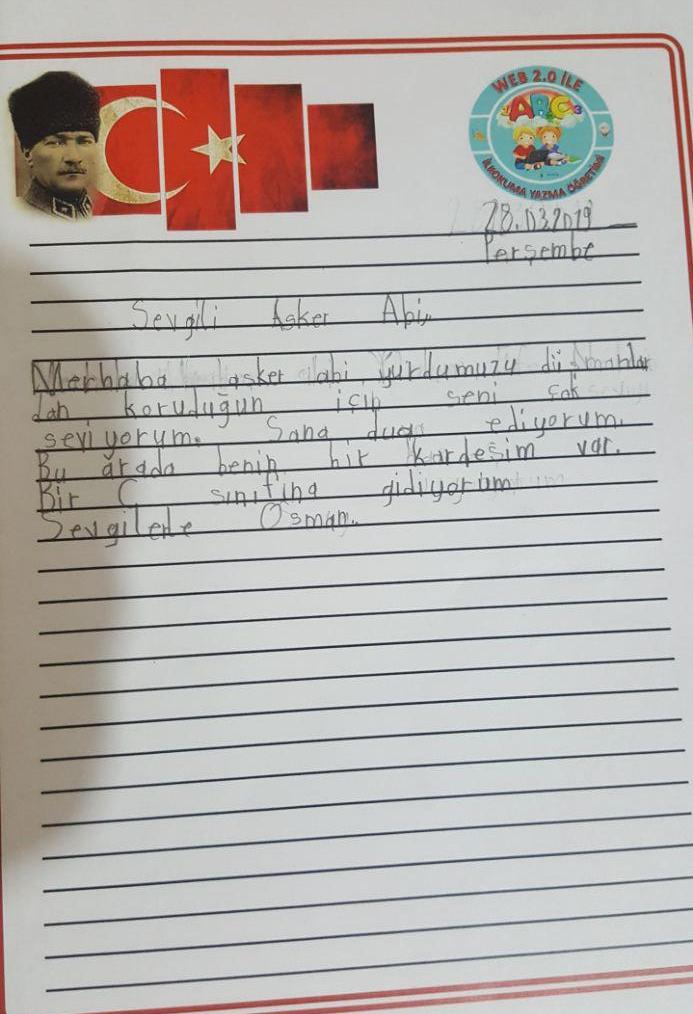 WEB 2.0 İLE
ABC
İLKOKUMA YAZMA ÖĞRETİMİ
28.03.2019
Perşembe
Sevgili Asker Abi,,
Merhaba asker abi yurdumuzu düşmanlar
dan koruduğun için seni çok
seviyorum. Sana dua ediyorum.
Bu arada benim bir kardeşim var.
Bir C sınıfına gidiyorum
Sevgilerle Osman..